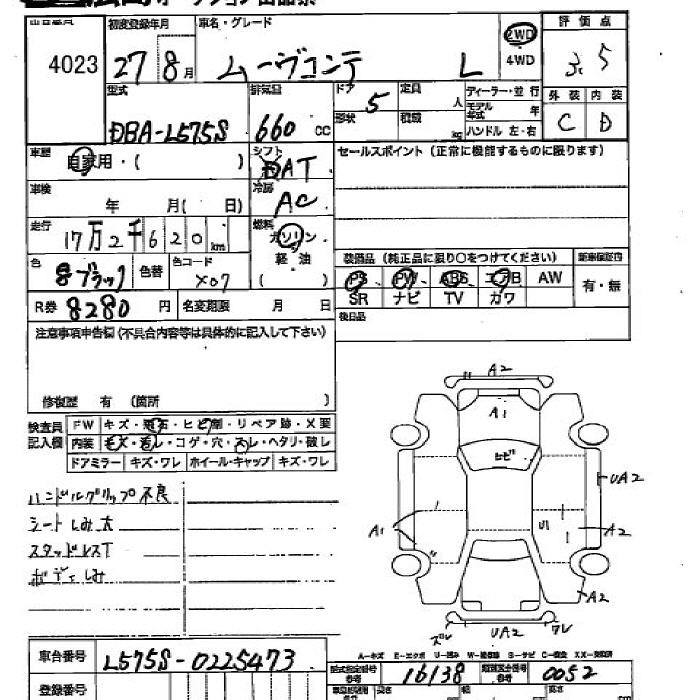 オークション出品票
出品番号 初度登録年月 車名・グレード 評価点
4023 27 8月 ムーヴコンテ L 2WD 4WD 3.5
型式 排気量 ドア 定員 ディーラー・並行 外装 内装
DBA-L575S 660 CC 5 人 モデル年式 年 C D
形状 積載 kg ハンドル 左・右
車歴 自家用・( ) シフト AT セールスポイント (正常に機能するものに限ります)
車検 年 月( 日) 冷房 AC
走行 17万2千620km 燃料 ガソリン 軽油 ( )
装備品 (純正品に限り○をつけてください) 新車保証書
色 ブラック 色替 色コード X07 PS PW ABS エアB AW 有・無
SR ナビ TV カワ
R券 8280円 名変期限 月 日 後日品
注意事項申告欄(不具合内容等は具体的に記入して下さい)
修復歴 有 (箇所 )
検査員記入欄 FW キズ・飛石・ヒビ割・リペア跡・X要
内装 キズ・汚レ・コゲ・穴・スレ・ヘタリ・破レ
ドアミラー キズ・ワレ ホイール・キャップ キズ・ワレ
ハンドルグリップ不良
シートしみ大
スタッドレスT
ボディしみ
A2
A1
ヒビ
UA2
A1 U1 A2
A2
ズレ UA2 ワレ
A－キズ E－エクボ U－凹み W－補修跡 S－サビ C－腐食 XX－交換済
車台番号 L575S-0225473 型式指定番号 参考 16138 類別区分番号 参考 0052
登録番号 長さ 幅 高さ